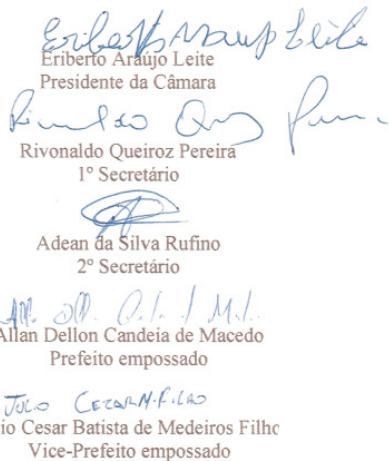 Eriberto Araújo Leite
Eriberto Araújo Leite
Presidente da Câmara
Rivonaldo Queiroz Pereira
1º Secretário
Adean da Silva Rufino
2º Secretário
Allan Dellon Candeia de Macedo
Prefeito empossado
JULIO CEZAR M. FILHO
io Cesar Batista de Medeiros Filho
Vice-Prefeito empossado